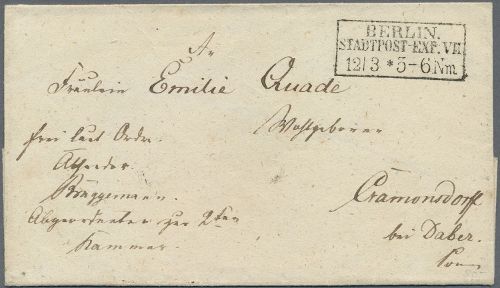 BERLIN.
STADTPOST-EXP. VII.
12/3 * 5-6 Nm
An
Fräulein Emilie Quade
Wohlgeboren
frei laut Ordre.
Absender
Brüggemann.
Abgeordneter zur 2ten
Kammer.
Cramonsdorff
bei Daber.
Pom